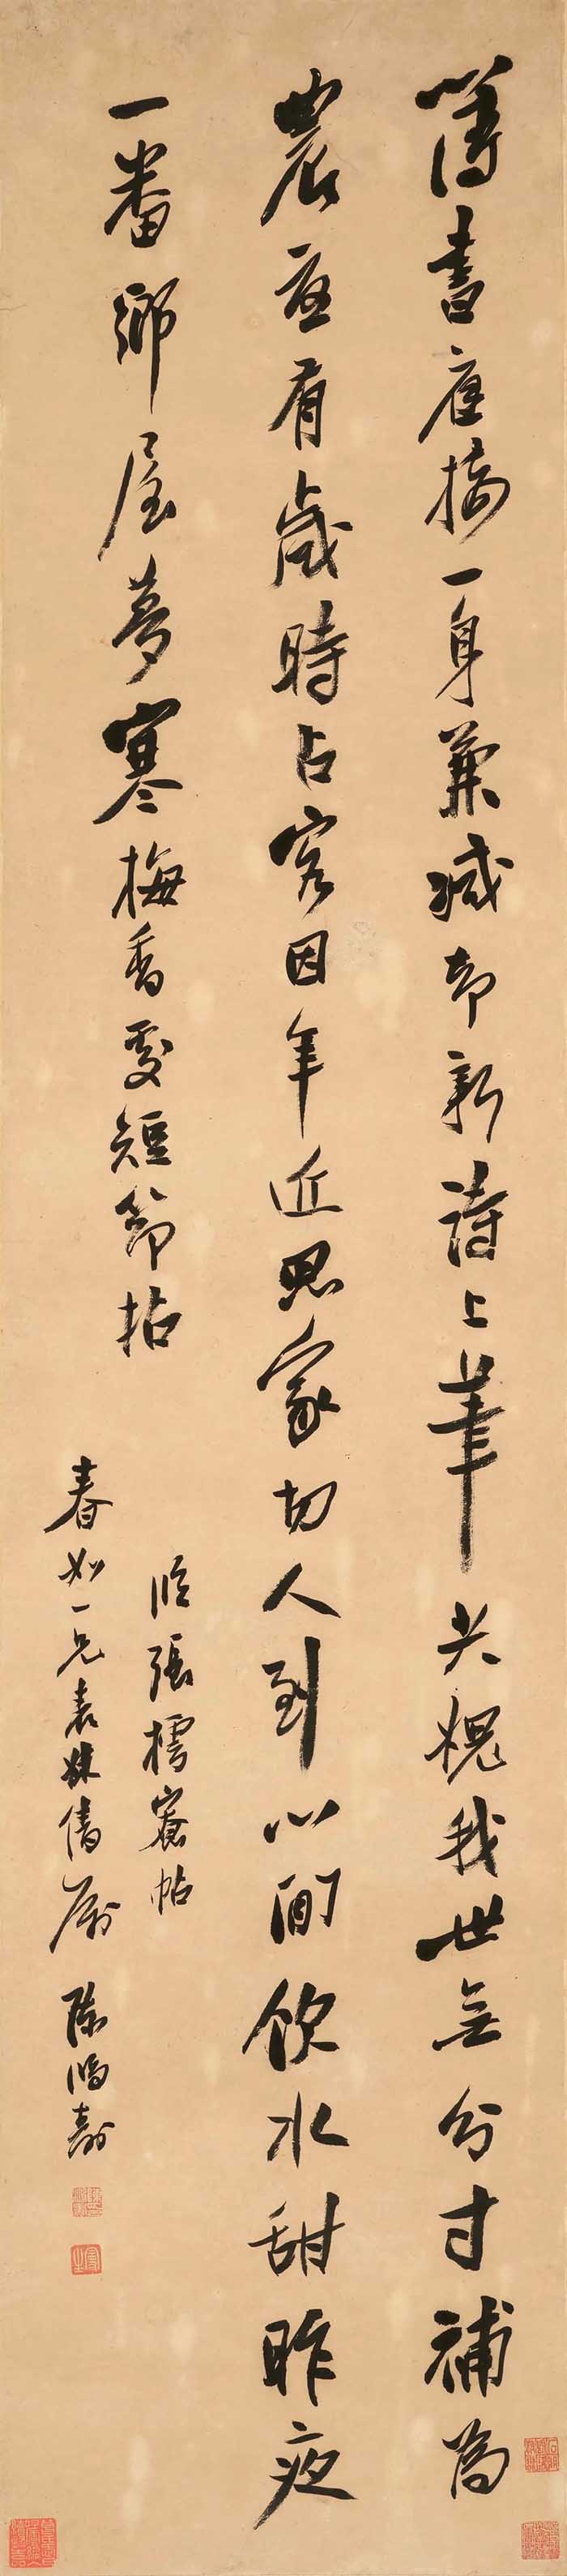 簿書應接一身兼減却新詩上筆尖愧我世無分寸補為
農應有歲時占客因年近思家切人到心閒飲水甜昨夜
一番鄉屋夢寒梅香處短節拈
臨張樗寮帖
春如一兄表姊倩屬 陳鴻壽